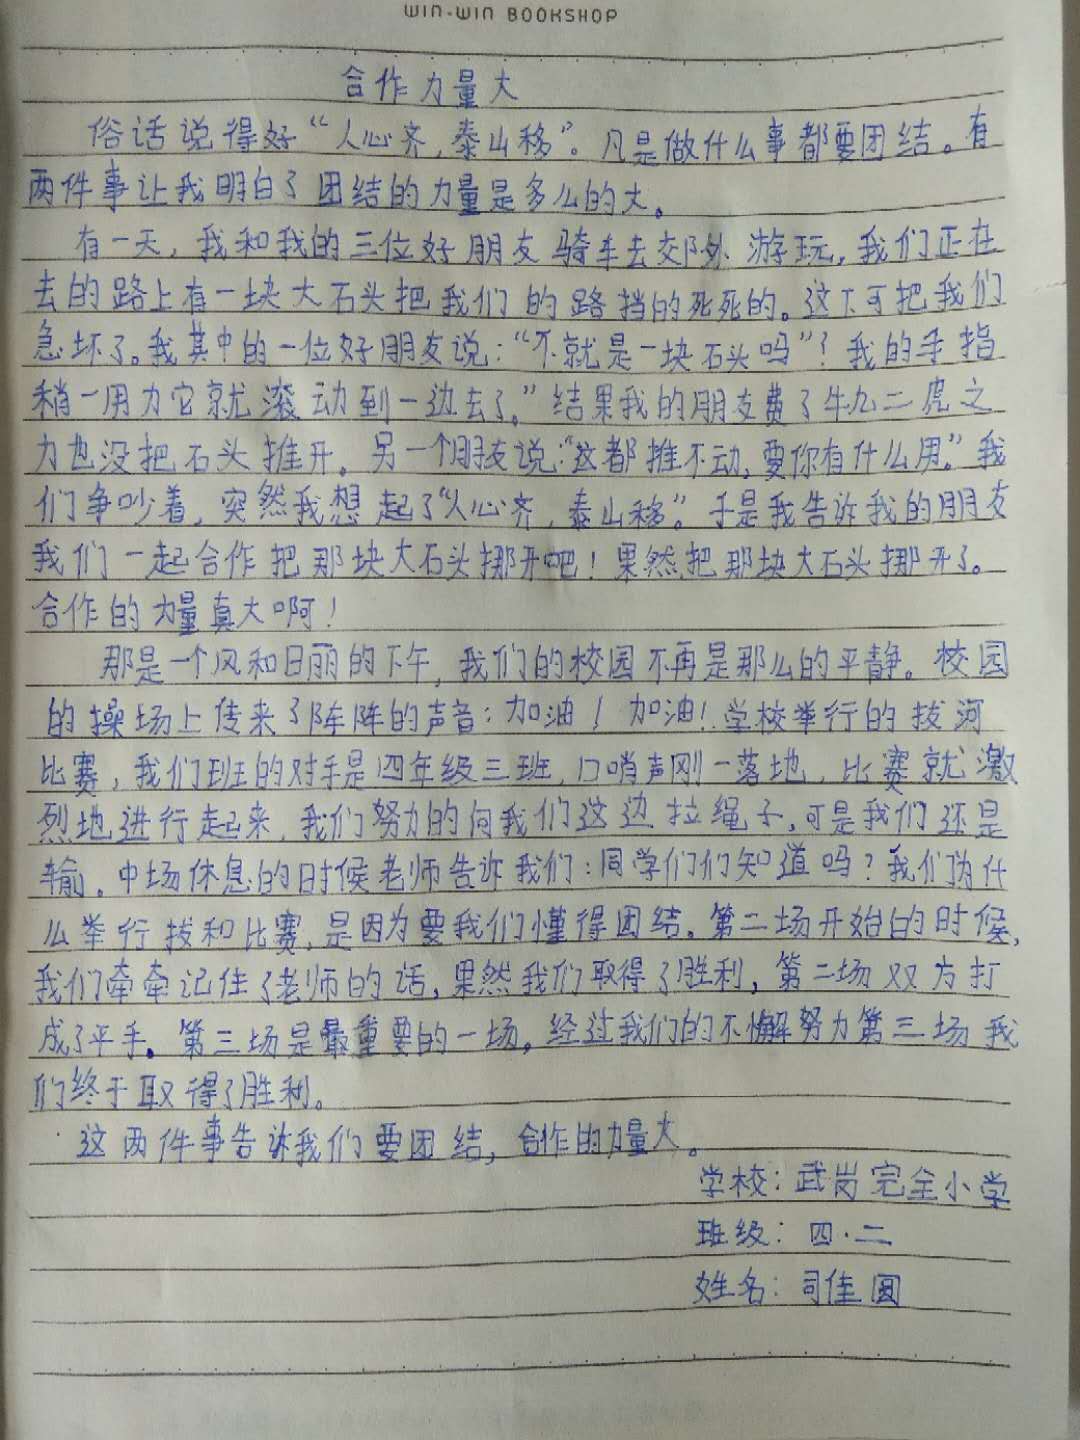 WIN-WIN BOOKSHOP
合作力量大
俗话说得好“人心齐,泰山移”。凡是做什么事都要团结。有
两件事让我明白了团结的力量是多么的大。
有一天,我和我的三位好朋友骑车去郊外游玩,我们正在
去的路上有一块大石头把我们的路挡的死死的。这下可把我们
急坏了。我其中的一位好朋友说:“不就是一块石头吗”?我的手指
稍一用力它就滚动到一边去了。”结果我的朋友费了牛九二虎之
力也没把石头推开。另一个朋友说:“这都推不动,要你有什么用。”我
们争吵着,突然我想起了“人心齐,泰山移”。于是我告诉我的朋友
我们一起合作把那块大石头挪开吧!果然把那块大石头挪开了。
合作的力量真大啊!
那是一个风和日丽的下午,我们的校园不再是那么的平静。校园
的操场上传来了阵阵的声音:加油!加油!学校举行的拔河
比赛,我们班的对手是四年级三班,口哨声刚一落地,比赛就激
烈地进行起来,我们努力的向我们这边拉绳子,可是我们还是
输。中场休息的时候老师告诉我们:同学们们知道吗?我们为什
么举行拔和比赛,是因为要我们懂得团结。第二场开始的时候,
我们牵牵记住了老师的话,果然我们取得了胜利,第二场双方打
成了平手。第三场是最重要的一场。经过我们的不懈努力第三场我
们终于取得了胜利。
这两件事告诉我们要团结,合作的力量大。
学校:武岗完全小学
班级:四·二
姓名:司佳圆